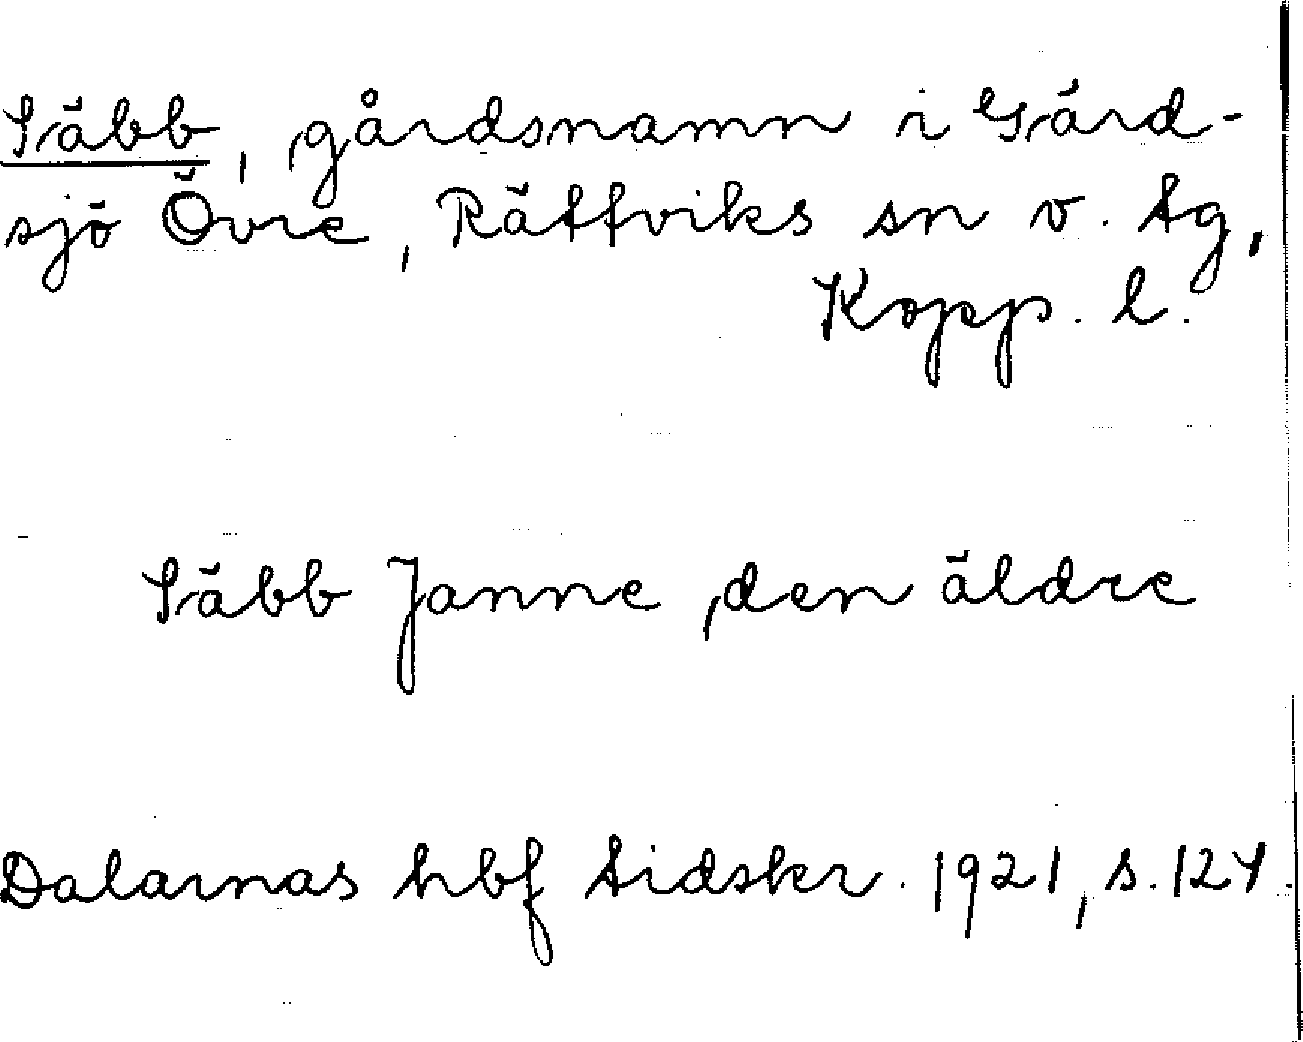 Säbb, gårdsnamn i Gärd-
sjö Övre, Rättviks sn v. tg,
Kopp. l.
Säbb Janne, den äldre
Dalarnas hbf tidskr. 1921, s. 124.